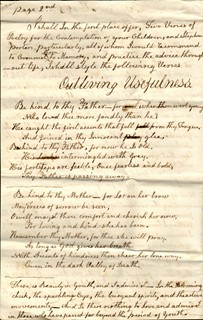 Page 2nd
I shall in the first place offer, Five Verses of
Poetry for the Contemplation of your Children, and Stephen
Porter, particularly, all of whom I would recommend
to Commit to Memory, and practice the advice through
out life, I shall Style the following Verses
Outliving Usefulness
Be kind to thy Father — for when thou wert young
Who loved thee more fondly than he?
He caught the first accents that fell from thy tongue,
And joined in thy innocent glee,
Be kind to thy Father, for now he is old,
His intermingled with gray,
His footsteps are feeble, Once fearless and bold,
Thy Father is passing away.
Be kind to thy Mother — for lo! on her brow
May traces of sorrow be seen,
O well may'st thou comfort and cherish her now,
For loving and kind she has been.
Remember thy Mother, for thee she will pray,
As long as God gives her breath
With Accents of kindness then cheer her lone way,
Even in the dark Valley of Death.
There is beauty in Youth, and admire in the blooming
cheek, the sparkling Eye, the buoyant spirits, and the active
movements, that is there nothing to love, and admire
in those who have passed beyond the period of Youth